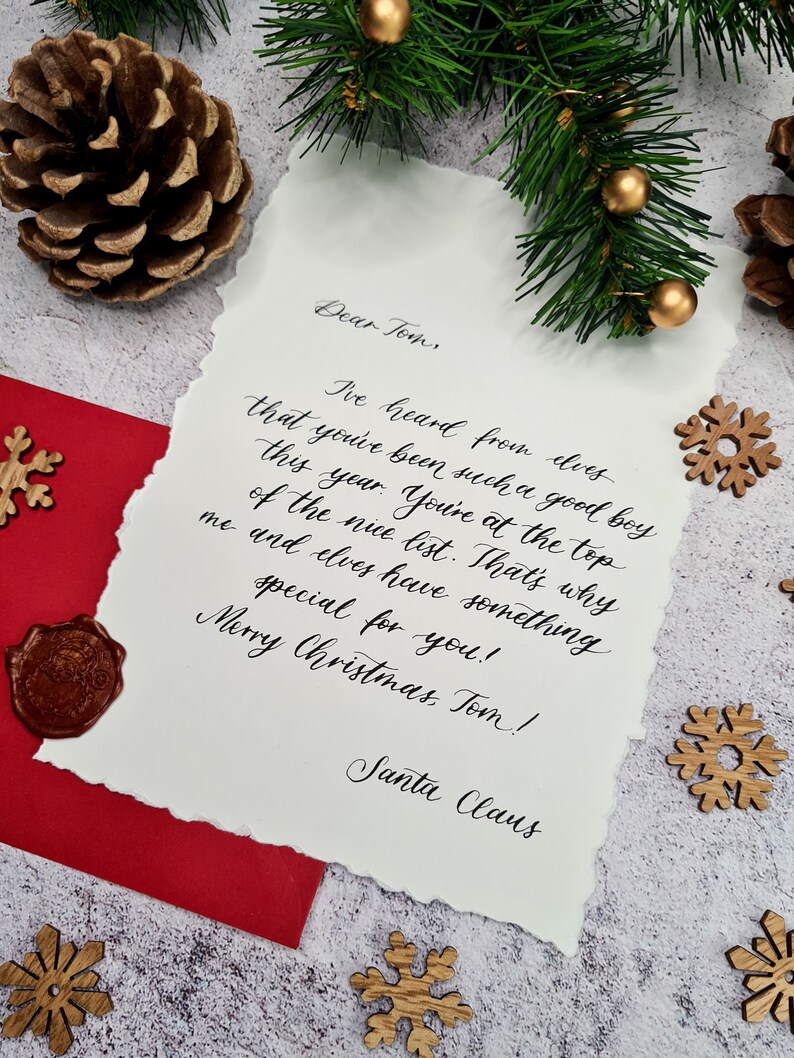 Dear Tom,
I've heard from elves
that you've been such a good boy
this year. You're at the top
of the nice list. That's why
me and elves have something
special for you!
Merry Christmas, Tom!
Santa Claus